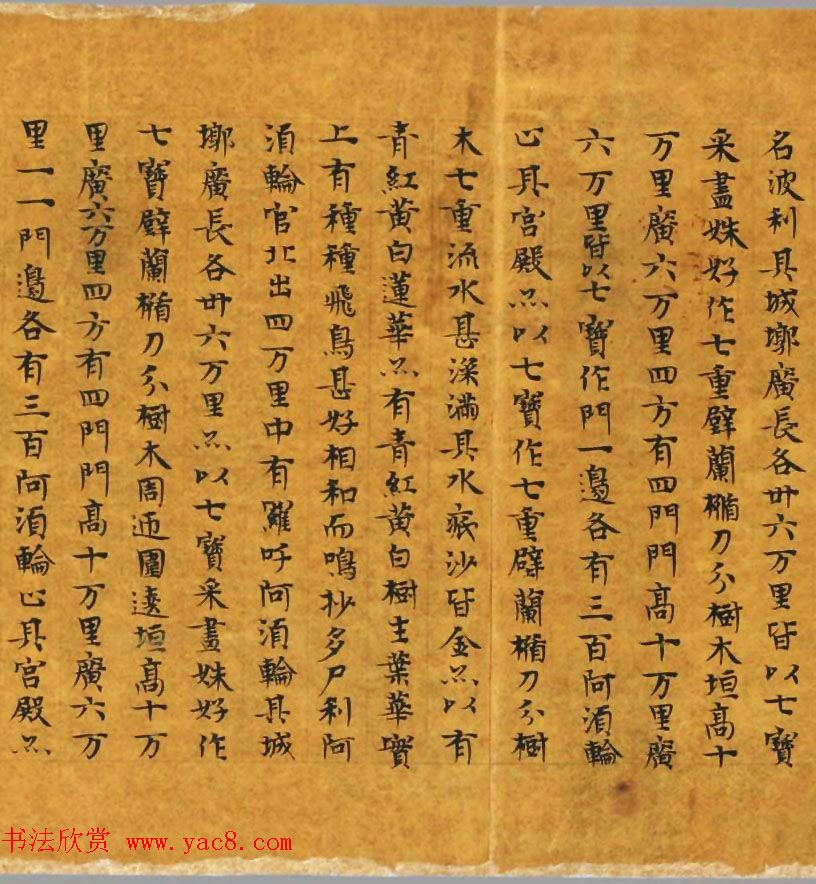 名波利其城墎廣長各卅六万里皆以七寶
采畫姝好作七重壁蘭楯刀分樹木垣高十
万里廣六万里四方有四門門高十万里廣
六万里皆以七寶作門一邊各有三百阿湏輪
止其宮殿亦以七寶作七重壁蘭楯刀分樹
木七重流水甚深滿其水底沙皆金亦以有
青紅黄白蓮華亦有青紅黄白樹生葉華實
上有種種飛鳥甚好相和而鳴抄多尸利阿
湏輪宮北出四万里中有羅呼阿湏輪其城
墎廣長各卅六万里亦以七寶采畫姝好作
七寶壁蘭楯刀分樹木周迊圍遶垣高十万
里廣六万里四方有四門門高十万里廣六万
里一一門邊各有三百阿湏輪止其宮殿亦
书法欣赏 www.yac8.com